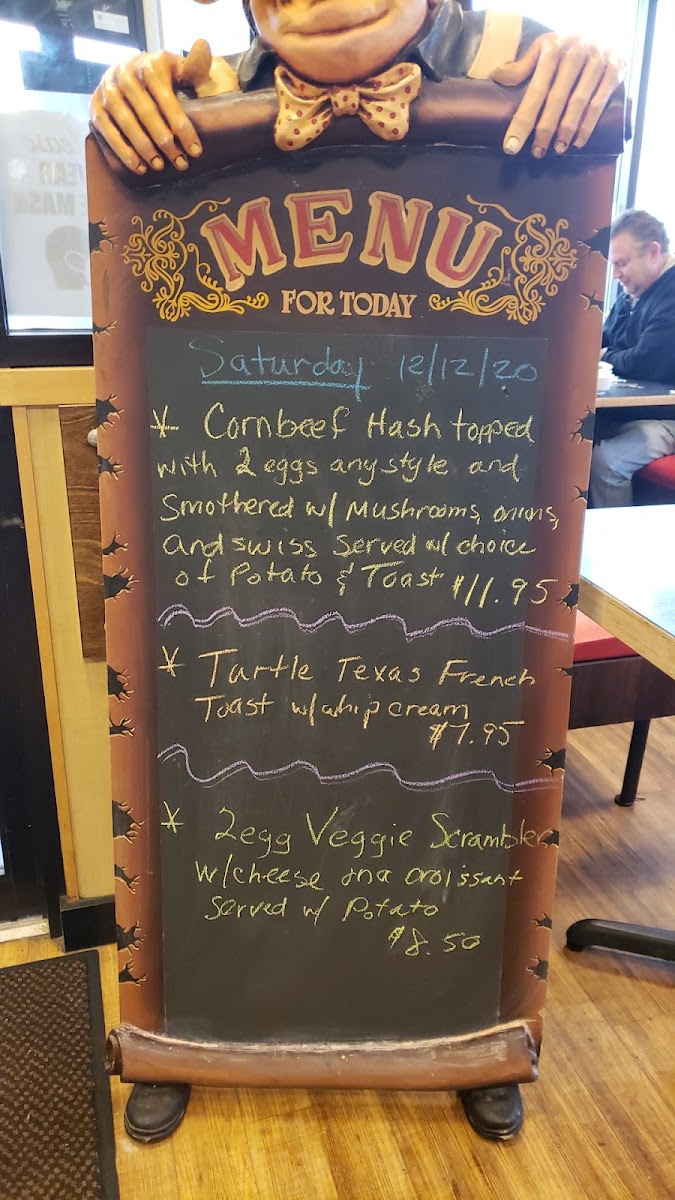 ease
WEAR
E MASK
MENU
FOR TODAY
Saturday 12/12/20
* Cornbeef Hash topped
with 2 eggs anystyle and
Smothered w/ Mushrooms, onions,
and swiss Served w/ choice
of Potato & Toast $11.95
* Turtle Texas French
Toast w/whip cream
$7.95
* 2egg Veggie Scrambler
w/cheese on a croissant
Served w/ Potato
$8.50